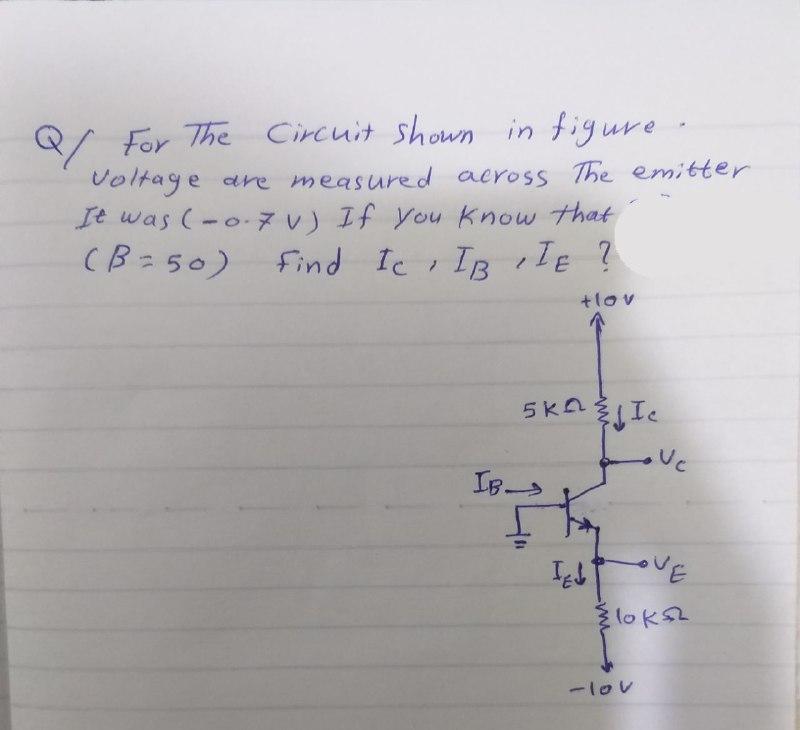 Q/ For The Circuit shown in figure.
Voltage are measured across The emitter
It was (-0.7 V) If you know that
(B = 50) find IC, IB, IE ?
+10V
5KΩ ↓ IC
VC
IB →
IE↓ VE
10KΩ
-10V